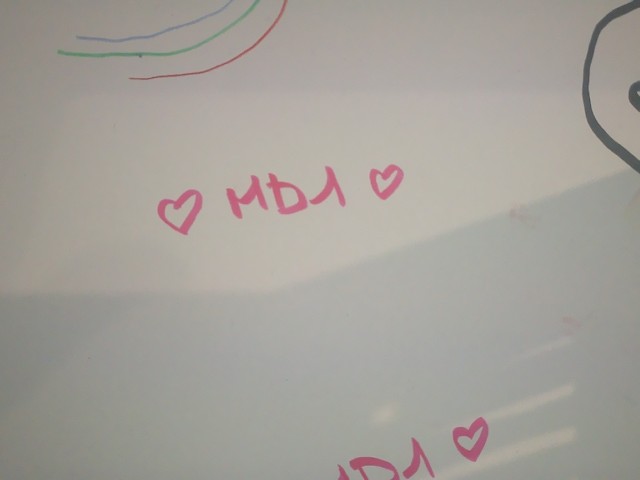 ♡ MD1 ♡
MD1 ♡